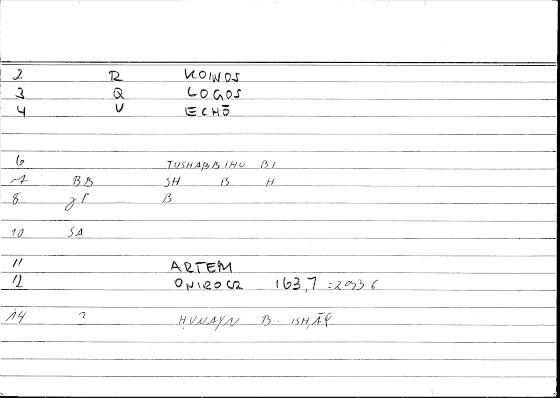 2 R KOINOS
3 Q LOGOS
4 V ECHŌ
6 TUSHABBIHU BI
7 BB SH B H
8 gP B
10 SA
11 ARTEM
12 ONIROCR 163,7 = 209
14 ? ḤUNAYN B. ISḤĀQ